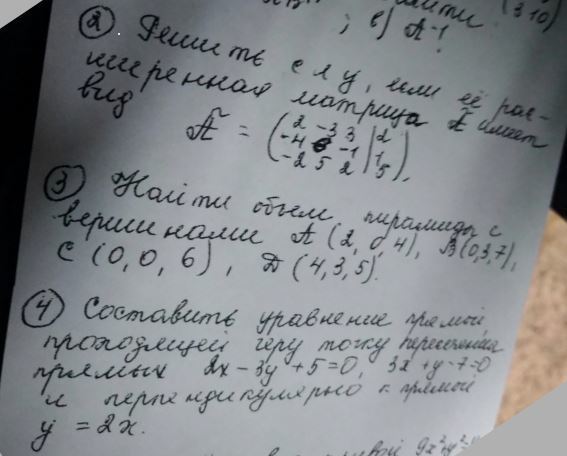 (3 10)
; е) А⁻¹.
② Решить слу, если её рас-
ширенная матрица Ã имеет
вид
Ã = ( 2 -3 3 | 2
-4 6 -1 | 1
-2 5 2 | 5 ).
③ Найти объем пирамиды с
вершинами А (2, 0, 4), В(0,3,7),
С (0,0,6), Д (4,3,5).
④ Составить уравнение прямой,
проходящей через точку пересечения
прямых 2x - 3y + 5 = 0, 3x + y - 7 = 0
и перпендикулярно к прямой
y = 2x.